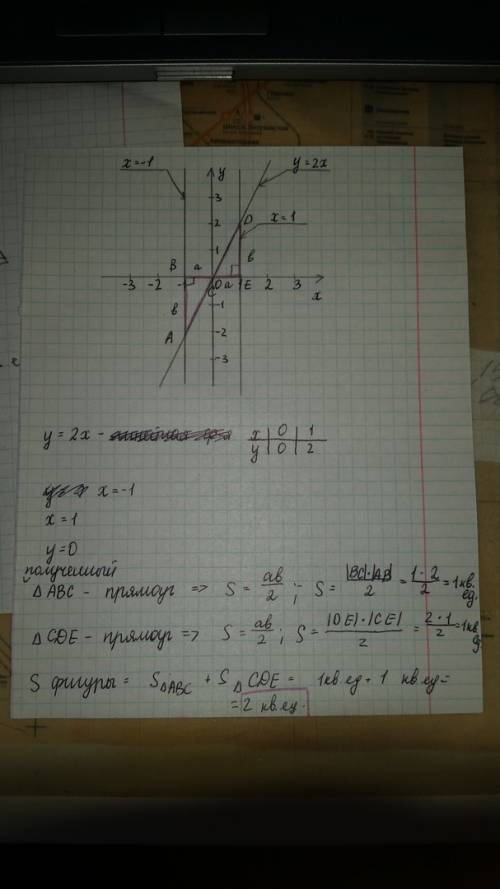 x=-1
y
y=2x
3
D
x=1
2
1
B
a
b
-3 -2 -1 0 a 1 E 2 3
C
x
b
-1
A
-2
-3
y = 2x -
x 0 1
y 0 2
x=-1
x=1
y=0
полученный
Δ ABC - прямоуг => S = ab/2 ; S = |BC|·|AB|/2 = 1·2/2 = 1 кв. ед.
Δ CDE - прямоуг => S = ab/2 ; S = |DE|·|CE|/2 = 2·1/2 = 1 кв. ед.
S фигуры = SΔABC + SΔCDE = 1 кв ед + 1 кв. ед =
= 2 кв. ед.